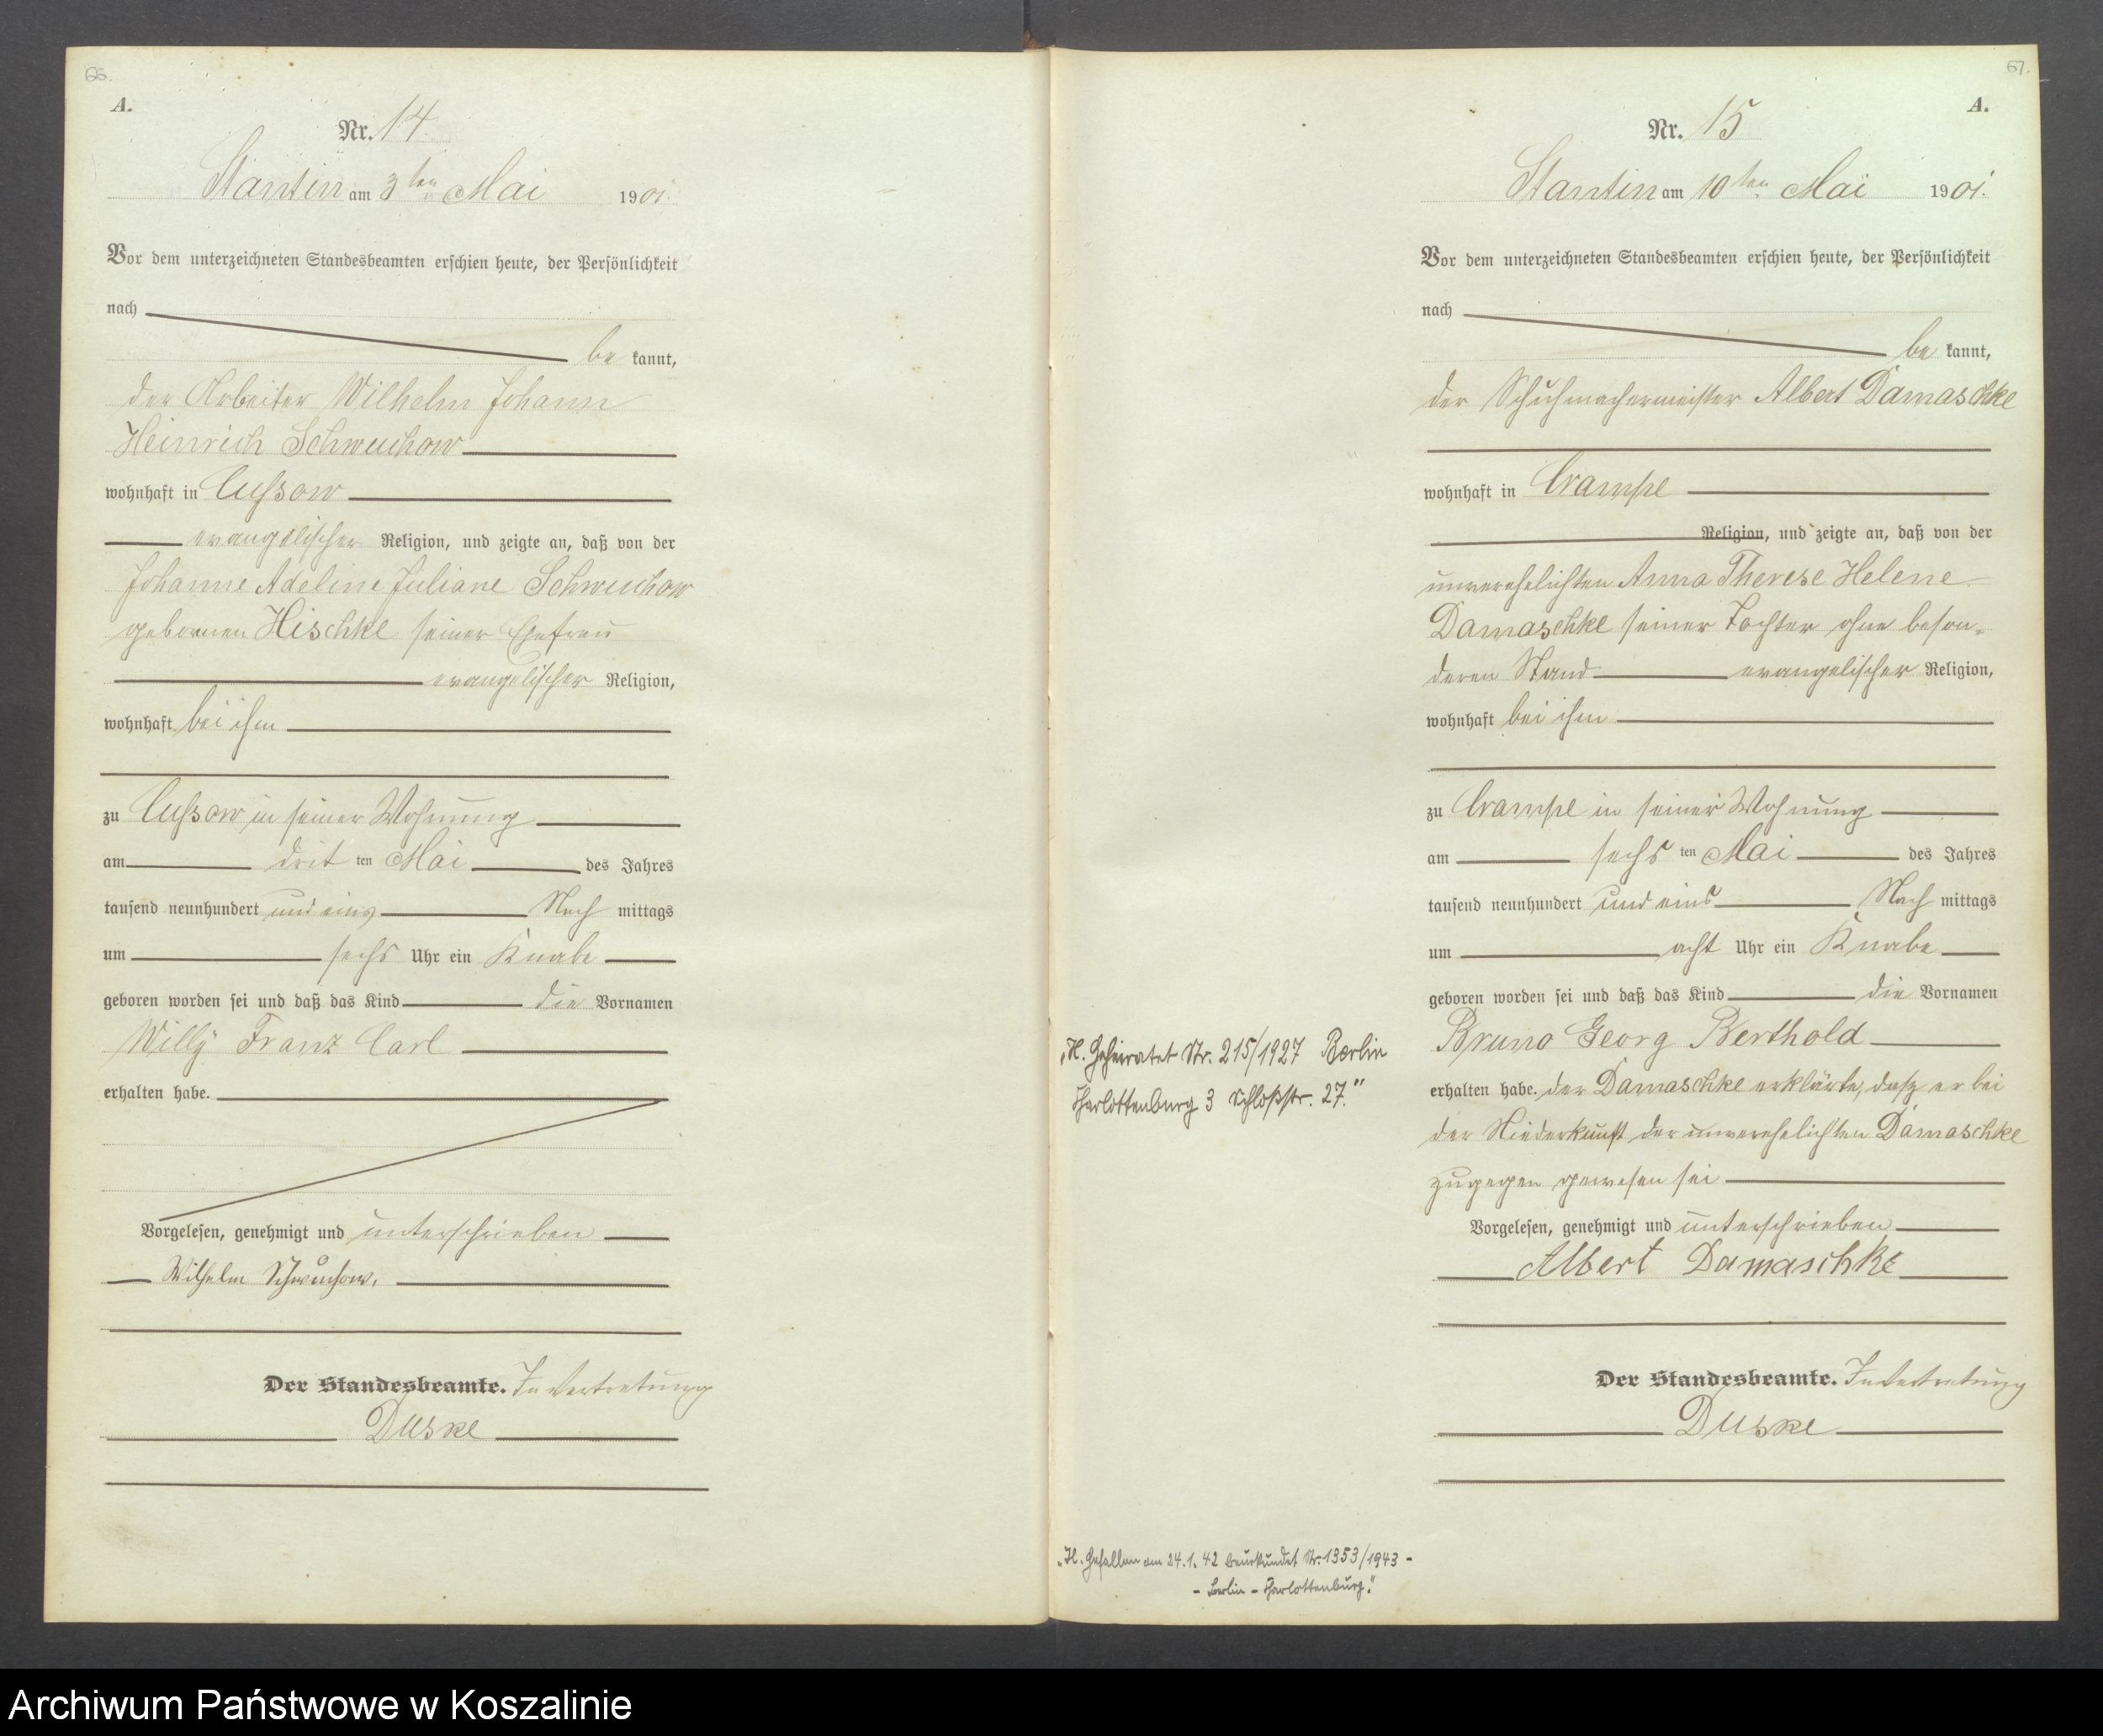 66.
A.
Nr. 14.
Stantin am 3ten Mai 1901.
Vor dem unterzeichneten Standesbeamten erschien heute, der Persönlichkeit
nach
be kannt,
der Arbeiter Wilhelm Johann
Heinrich Schwuchow
wohnhaft in Cussow
evangelischer Religion, und zeigte an, daß von der
Johanne Adeline Juliane Schwuchow
gebornen Hischke seiner Ehefrau
evangelischer Religion,
wohnhaft bei ihm
zu Cussow in seiner Wohnung
am drit ten Mai des Jahres
tausend neunhundert und eins Nach mittags
um sechs Uhr ein Knabe
geboren worden sei und daß das Kind die Vornamen
Willy Franz Carl
erhalten habe.
Vorgelesen, genehmigt und unterschrieben
Wilhelm Schwuchow.
Der Standesbeamte. In Vertretung
Duske
67.
A.
Nr. 15
Stantin am 10ten Mai 1901.
Vor dem unterzeichneten Standesbeamten erschien heute, der Persönlichkeit
nach
be kannt,
der Schuhmachermeister Albert Damaschke
wohnhaft in Crampe
Religion, und zeigte an, daß von der
unverehelichten Anna Therese Helene
Damaschke seiner Tochter ohne beson-
deren Stand evangelischer Religion,
wohnhaft bei ihm
zu Crampe in seiner Wohnung
am sechs ten Mai des Jahres
tausend neunhundert und eins Nach mittags
um acht Uhr ein Knabe
geboren worden sei und daß das Kind die Vornamen
Bruno Georg Berthold
erhalten habe. der Damaschke erklärte, dasz er bei
der Niederkunft der unverehelichten Damaschke
zugegen gewesen sei
Vorgelesen, genehmigt und unterschrieben
Albert Damaschke
Der Standesbeamte. In Vertretung
Duske
„H. Geheiratet Nr. 215/1927 Berlin
Charlottenburg 3 Schloßstr. 27."
„H. Gefallen am 24.1.42 beurkundet Nr. 1353/1943 -
- Berlin - Charlottenburg."
Archiwum Państwowe w Koszalinie